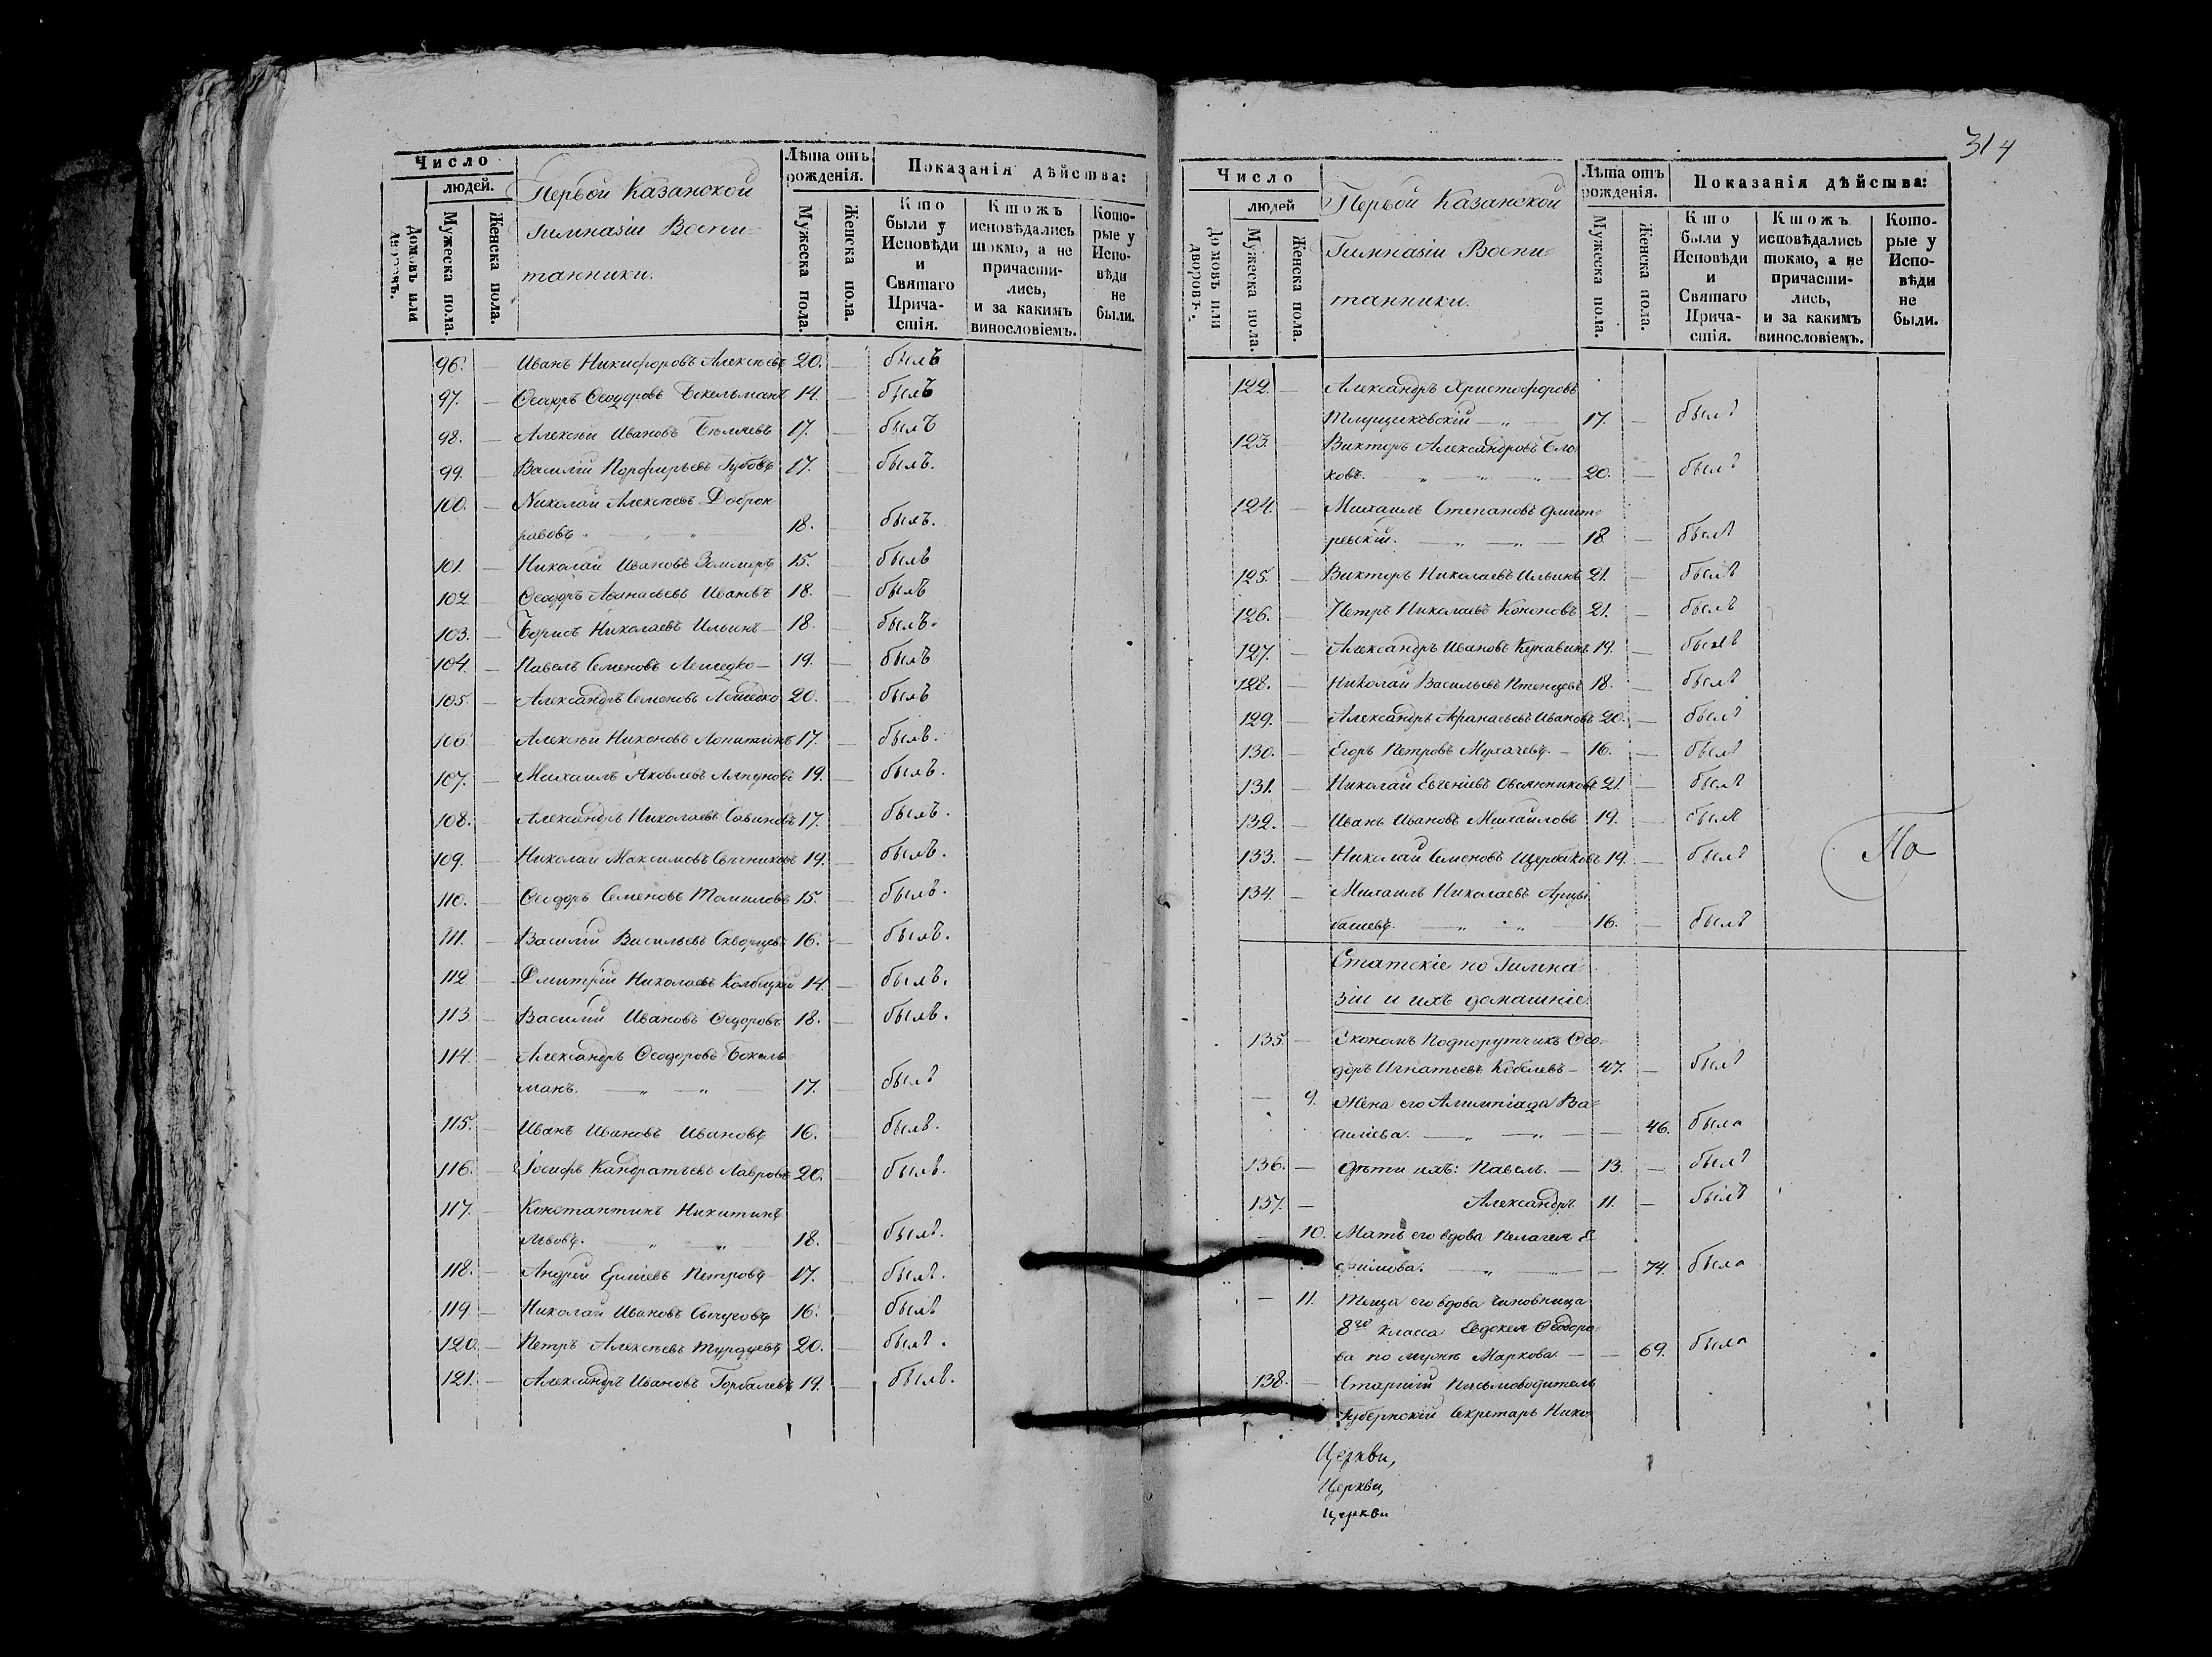 Число
людей.
Домовъ или
Мужеска пола.
Женска пола.
Первой Казанской
Гимназіи Воспи-
танники.
Лѣта отъ
рожденія.
Мужеска пола.
Женска пола.
Показанія дѣйства:
Кто
были у
Исповѣди
и
Святаго
Прича-
стія.
Ктожъ
исповѣдались
токмо, а не
причасти-
лись,
и за какимъ
винословіемъ.
Кото-
рые у
Испо-
вѣди
не
были.
96. — Иванъ Никифоровъ Алексѣевъ 20. — былъ
97. — Ѳеодоръ Ѳеодоровъ Бокельманъ 14. — былъ
98. — Алексѣй Ивановъ Бѣляевъ 17. — былъ
99. — Василій Порфирьевъ Зубовъ 17. — былъ.
100. — Николай Алексѣевъ Добронравовъ
18. — былъ.
101. — Николай Ивановъ Земмеръ 15. — былъ
102 — Ѳеодоръ Аѳанасьевъ Ивановъ 18. — былъ
103. — Борисъ Николаевъ Ильинъ — 18. — былъ.
104. — Павелъ Семеновъ — 19. — былъ
105. — Александръ Семеновъ 20. — былъ
106 — Алексѣй Никоновъ 17. — былъ.
107. — Михаилъ Яковлевъ Ляпуновъ 19. — былъ.
108. — Александръ Николаевъ Савиновъ 17. — былъ.
109. — Николай Максимовъ Свѣчниковъ 19. — былъ.
110. — Ѳеодоръ Семеновъ Томиловъ 15. — былъ.
111. — Василій Васильевъ Скворцовъ 16. — былъ.
112 — Дмитрій Николаевъ 14. — былъ.
113. — Василій Ивановъ Ѳедоровъ 18. — былъ.
114. — Александръ Ѳеодоровъ Бокель
манъ. — „ — „ 17. былъ
115. — Иванъ Ивановъ Ивановъ 16. — былъ.
116. — Іосифъ Кандратьевъ Лавровъ 20. — былъ.
117. — Константинъ Никитинъ
Львовъ. — „ — „ 18. — былъ.
118. — Андрей Петровъ 17. — былъ.
119 — Николай Ивановъ 16. — былъ
120. — Петръ Алексѣевъ 20. — былъ.
121. — Александръ Ивановъ Горбалевъ 19. — былъ.
314
Число
людей
Домовъ или
дворовъ.
Мужеска пола.
Женска пола.
Первой Казанской
Гимназіи Воспи-
танники.
Лѣта отъ
рожденія.
Мужеска пола.
Женска пола.
Показанія дѣйства:
Кто
были у
Исповѣди
и
Святаго
Прича-
стія.
Ктожъ
исповѣдались
токмо, а не
причасти-
лись,
и за какимъ
винословіемъ.
Кото-
рые у
Испо-
вѣди
не
были.
122. — Александръ Христофоровъ
17. — былъ
123. — Викторъ Александровъ Сло
ковъ. — „ — „ — 20. — былъ
124. — Михаилъ Степановъ Дмит-
ревскій. — „ — „ — 18 — былъ
125. — Викторъ Николаевъ Ильинъ 21. — былъ
126. — Петръ Николаевъ Кононовъ 21. — былъ
127. — Александръ Ивановъ Кунавинъ 19. — былъ
128. — Николай Васильевъ Птенцовъ 18. — былъ
129. — Александръ Афанасьевъ Ивановъ 20. — былъ
130. — Егоръ Петровъ — 16. — былъ
131. — Николай Евгеніевъ Овсянниковъ 21. — былъ
132. — Иванъ Ивановъ Михайловъ 19. — былъ
133. — Николай Семеновъ Щербаковъ 19. — былъ
По
134. — Михаилъ Николаевъ Арцы
башевъ. — „ — „ — 16. — былъ
Статскіе по Гимна-
зіи и ихъ домашніе.
135 — Экономъ Подпорутчикъ Ѳео-
доръ Игнатьевъ — 47. — былъ
— 9. Жена его Алимпіада Ва-
силіева. — „ — „ — — 46. была
136. — Дѣти ихъ: Павелъ. — 13. — былъ
137. — Александръ 11. — былъ
— 10. Мать его вдова Пелагея Е
фимова. — „ — „ — — 74. была
— 11. Теща его вдова чиновница
8го класса Евдокея Ѳеодоро-
ва по мужѣ Маркова. — — 69. была
138. — Старшій Письмоводитель
Губернскій Секретарь Нико-
Церкви,
Церкви,
Церкви